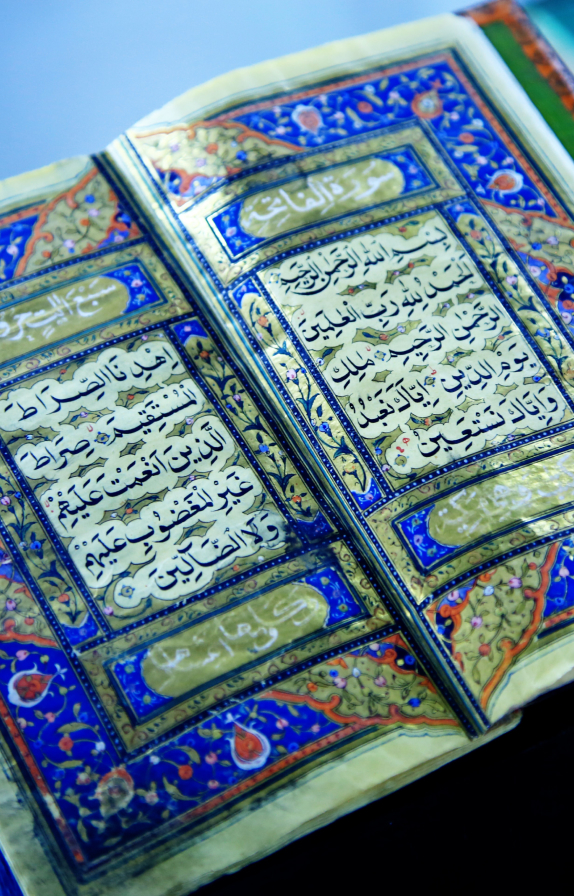 سورة الفاتحة
بسم الله الرحمن الرحيم
الحمد لله رب العلمين
الرحمن الرحيم ملك
يوم الدين اياك نعبد
واياك نستعين
سبع
اهدنا الصراط
المستقيم صراط
الذين انعمت عليهم
غير المغضوب عليهم
ولا الضالين